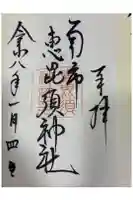 奉拝
南市
恵比須神社
令和八年一月四日